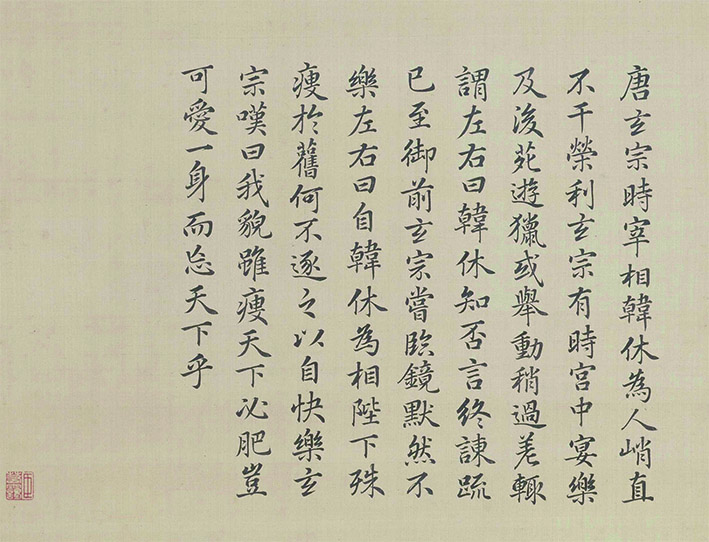 唐玄宗時宰相韓休為人峭直
不干榮利玄宗有時宮中宴樂
及後苑遊獵或舉動稍過差輙
謂左右曰韓休知否言終諫疏
已至御前玄宗嘗臨鏡默然不
樂左右曰自韓休為相陛下殊
瘦於舊何不逐之以自快樂玄
宗嘆曰我貌雖瘦天下必肥豈
可愛一身而忘天下乎